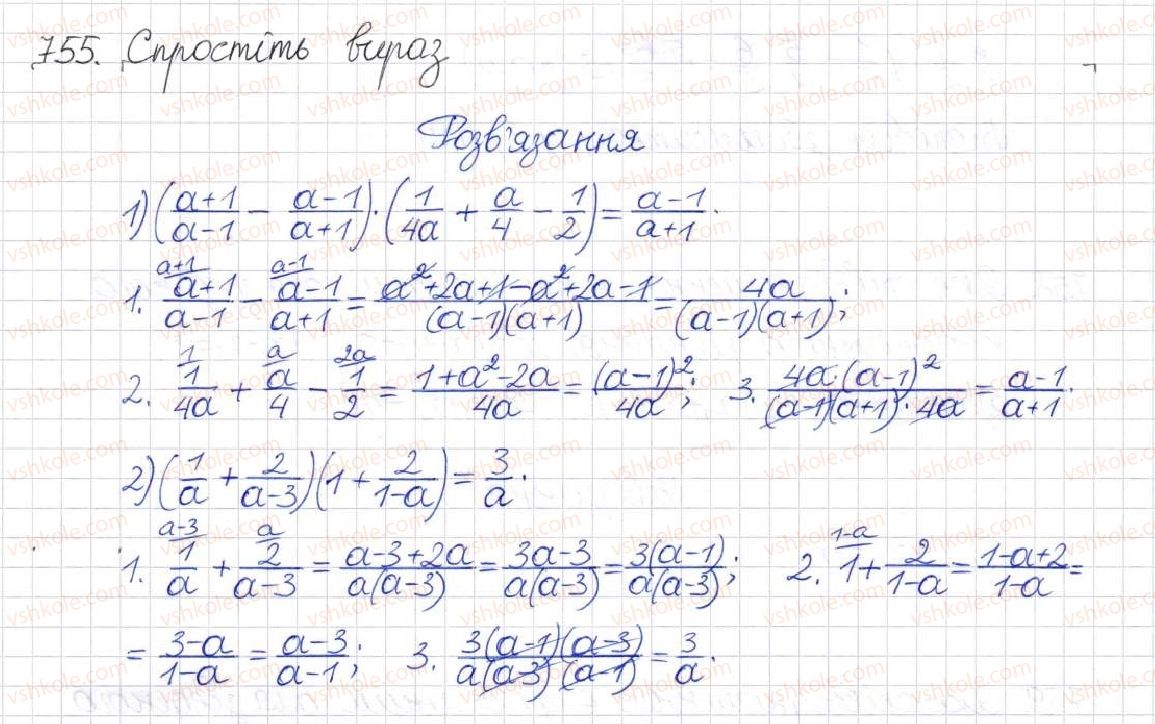 755. Спростіть вираз
Розв'язання
1) ((a+1)/(a-1) - (a-1)/(a+1)) · (1/(4a) + a/4 - 1/2) = (a-1)/(a+1).
1. (a+1)/(a-1) ^(a+1) - (a-1)/(a+1) ^(a-1) = (a²+2a+1-a²+2a-1)/((a-1)(a+1)) = 4a/((a-1)(a+1));
2. 1/(4a) ^(1) + a/4 ^(a) - 1/2 ^(2a) = (1+a²-2a)/(4a) = (a-1)²/(4a); 3. (4a·(a-1)²)/((a-1)(a+1)·4a) = (a-1)/(a+1).
2) (1/a + 2/(a-3))(1 + 2/(1-a)) = 3/a.
1. 1/a ^(a-3) + 2/(a-3) ^(a) = (a-3+2a)/(a(a-3)) = (3a-3)/(a(a-3)) = 3(a-1)/(a(a-3)); 2. 1 ^(1-a) + 2/(1-a) = (1-a+2)/(1-a) =
= (3-a)/(1-a) = (a-3)/(a-1); 3. (3(a-1)(a-3))/(a(a-3)(a-1)) = 3/a.
vshkole.com